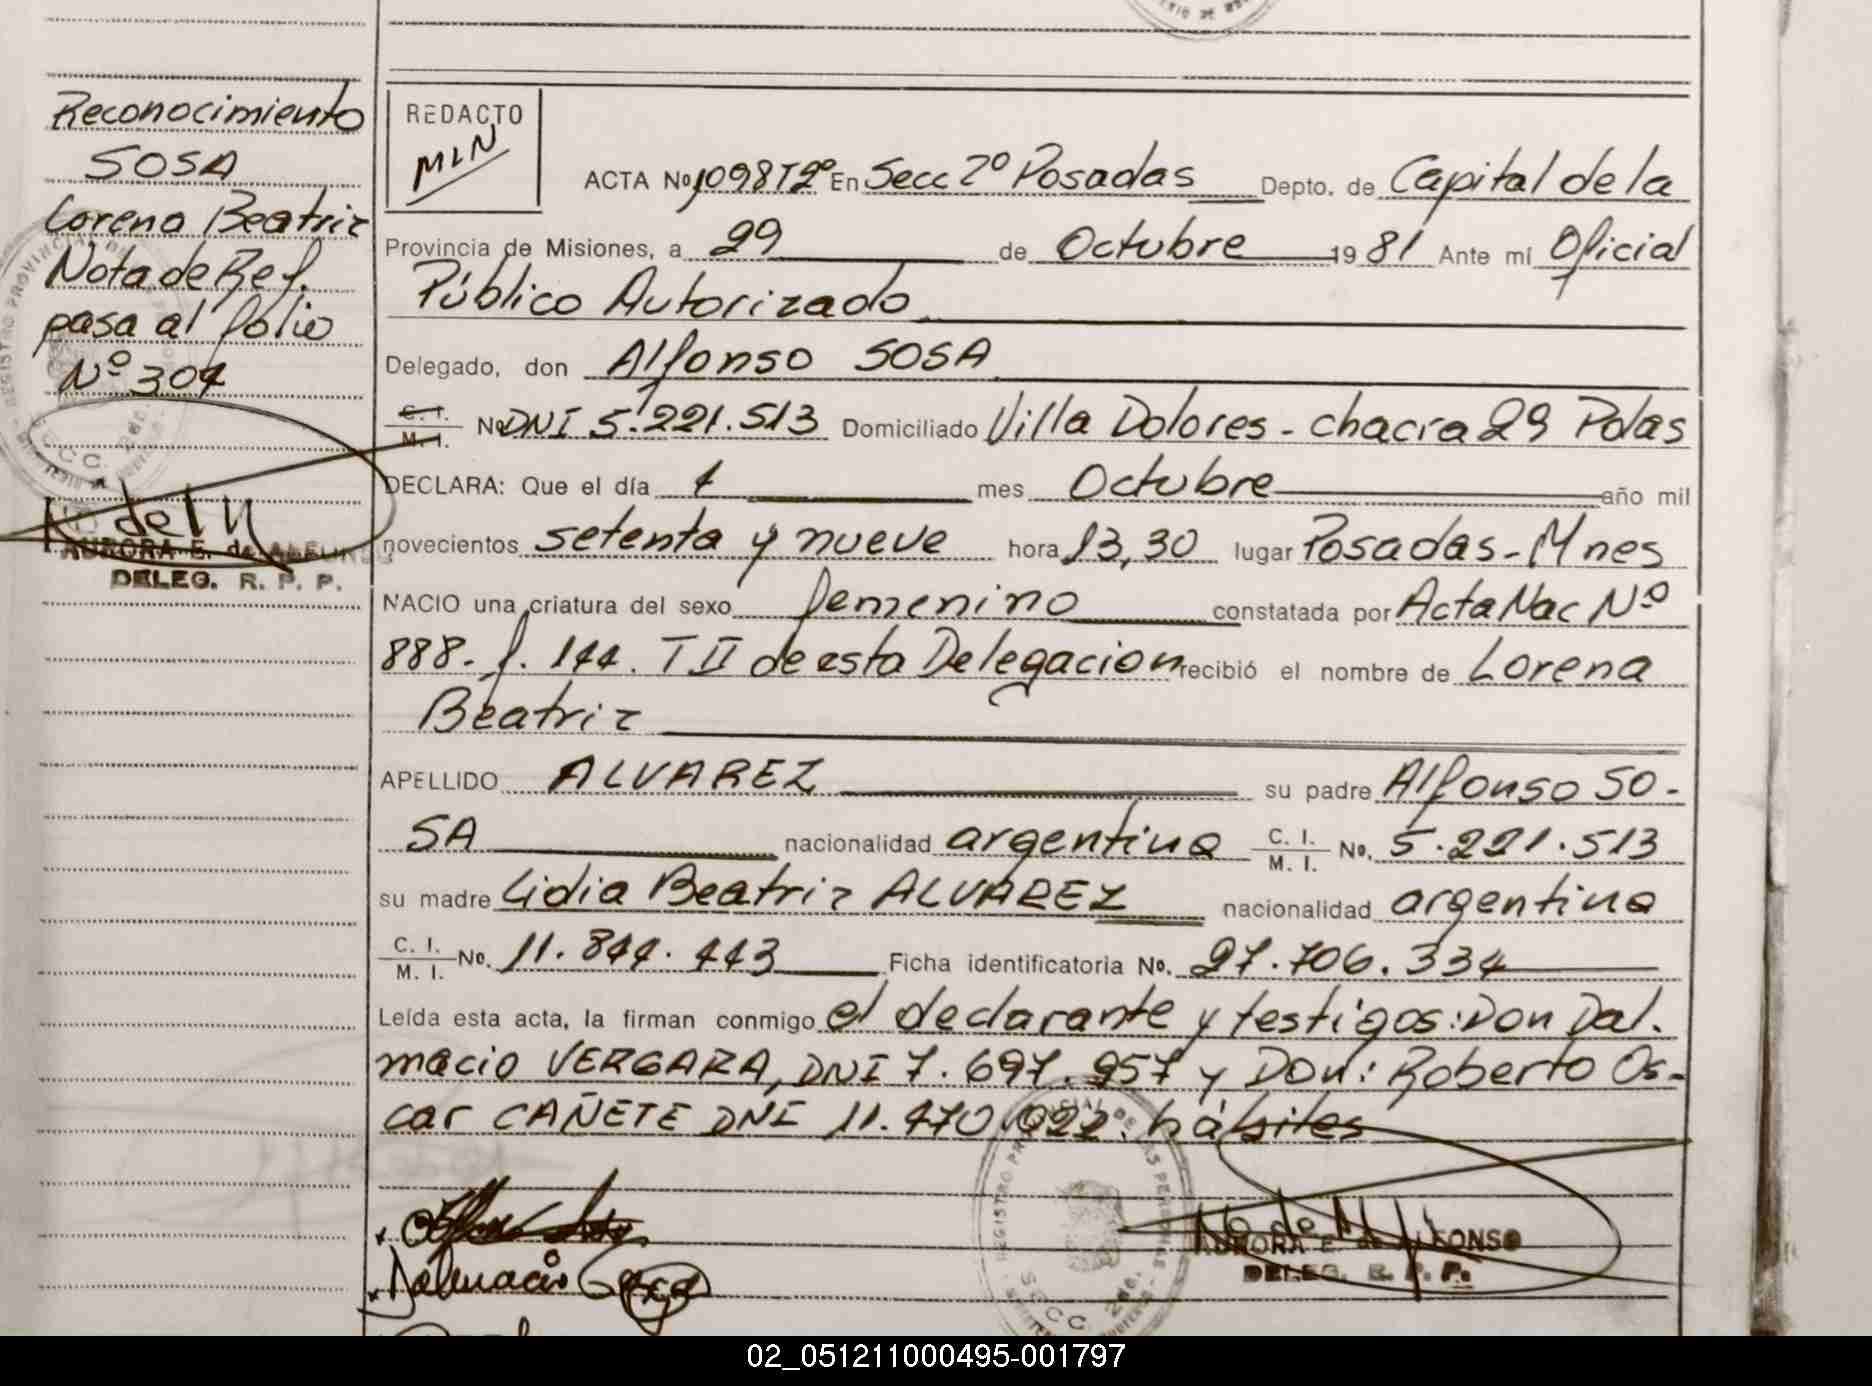 Reconocimiento
SOSA
Lorena Beatriz
Nota de Ref.
pasa al folio
Nº 304
AURORA E. de ALFONSO
DELEG. R. P. P.
REDACTO
MLN
ACTA No 1098 T2º En Secc 2º Posadas Depto. de Capital de la
Provincia de Misiones, a 29 de Octubre 1981 Ante mi Oficial
Público Autorizado
Delegado, don Alfonso SOSA
C. I. / M. I. No DNI 5.221.513 Domiciliado Villa Dolores - chacra 29 Pdas
DECLARA: Que el día 1 mes Octubre año mil
novecientos setenta y nueve hora 13,30 lugar Posadas - Mnes
NACIO una criatura del sexo femenino constatada por Acta Nac Nº
888. f. 144. T II de esta Delegacion recibió el nombre de Lorena
Beatriz
APELLIDO ALVAREZ su padre Alfonso SO-
SA nacionalidad argentina C. I. / M. I. No. 5.221.513
su madre Lidia Beatriz ALVAREZ nacionalidad argentina
C. I. / M. I. No. 11.844.443 Ficha identificatoria No. 27.706.334
Leída esta acta, la firman conmigo el declarante y testigos: Don Dal.
macio VERGARA, DNI 7.697.957 y Don: Roberto Os-
car CAÑETE DNI 11.470.022. hábiles
Dalmacio
AURORA E. de ALFONSO
DELEG. R. P. P.
02_051211000495-001797